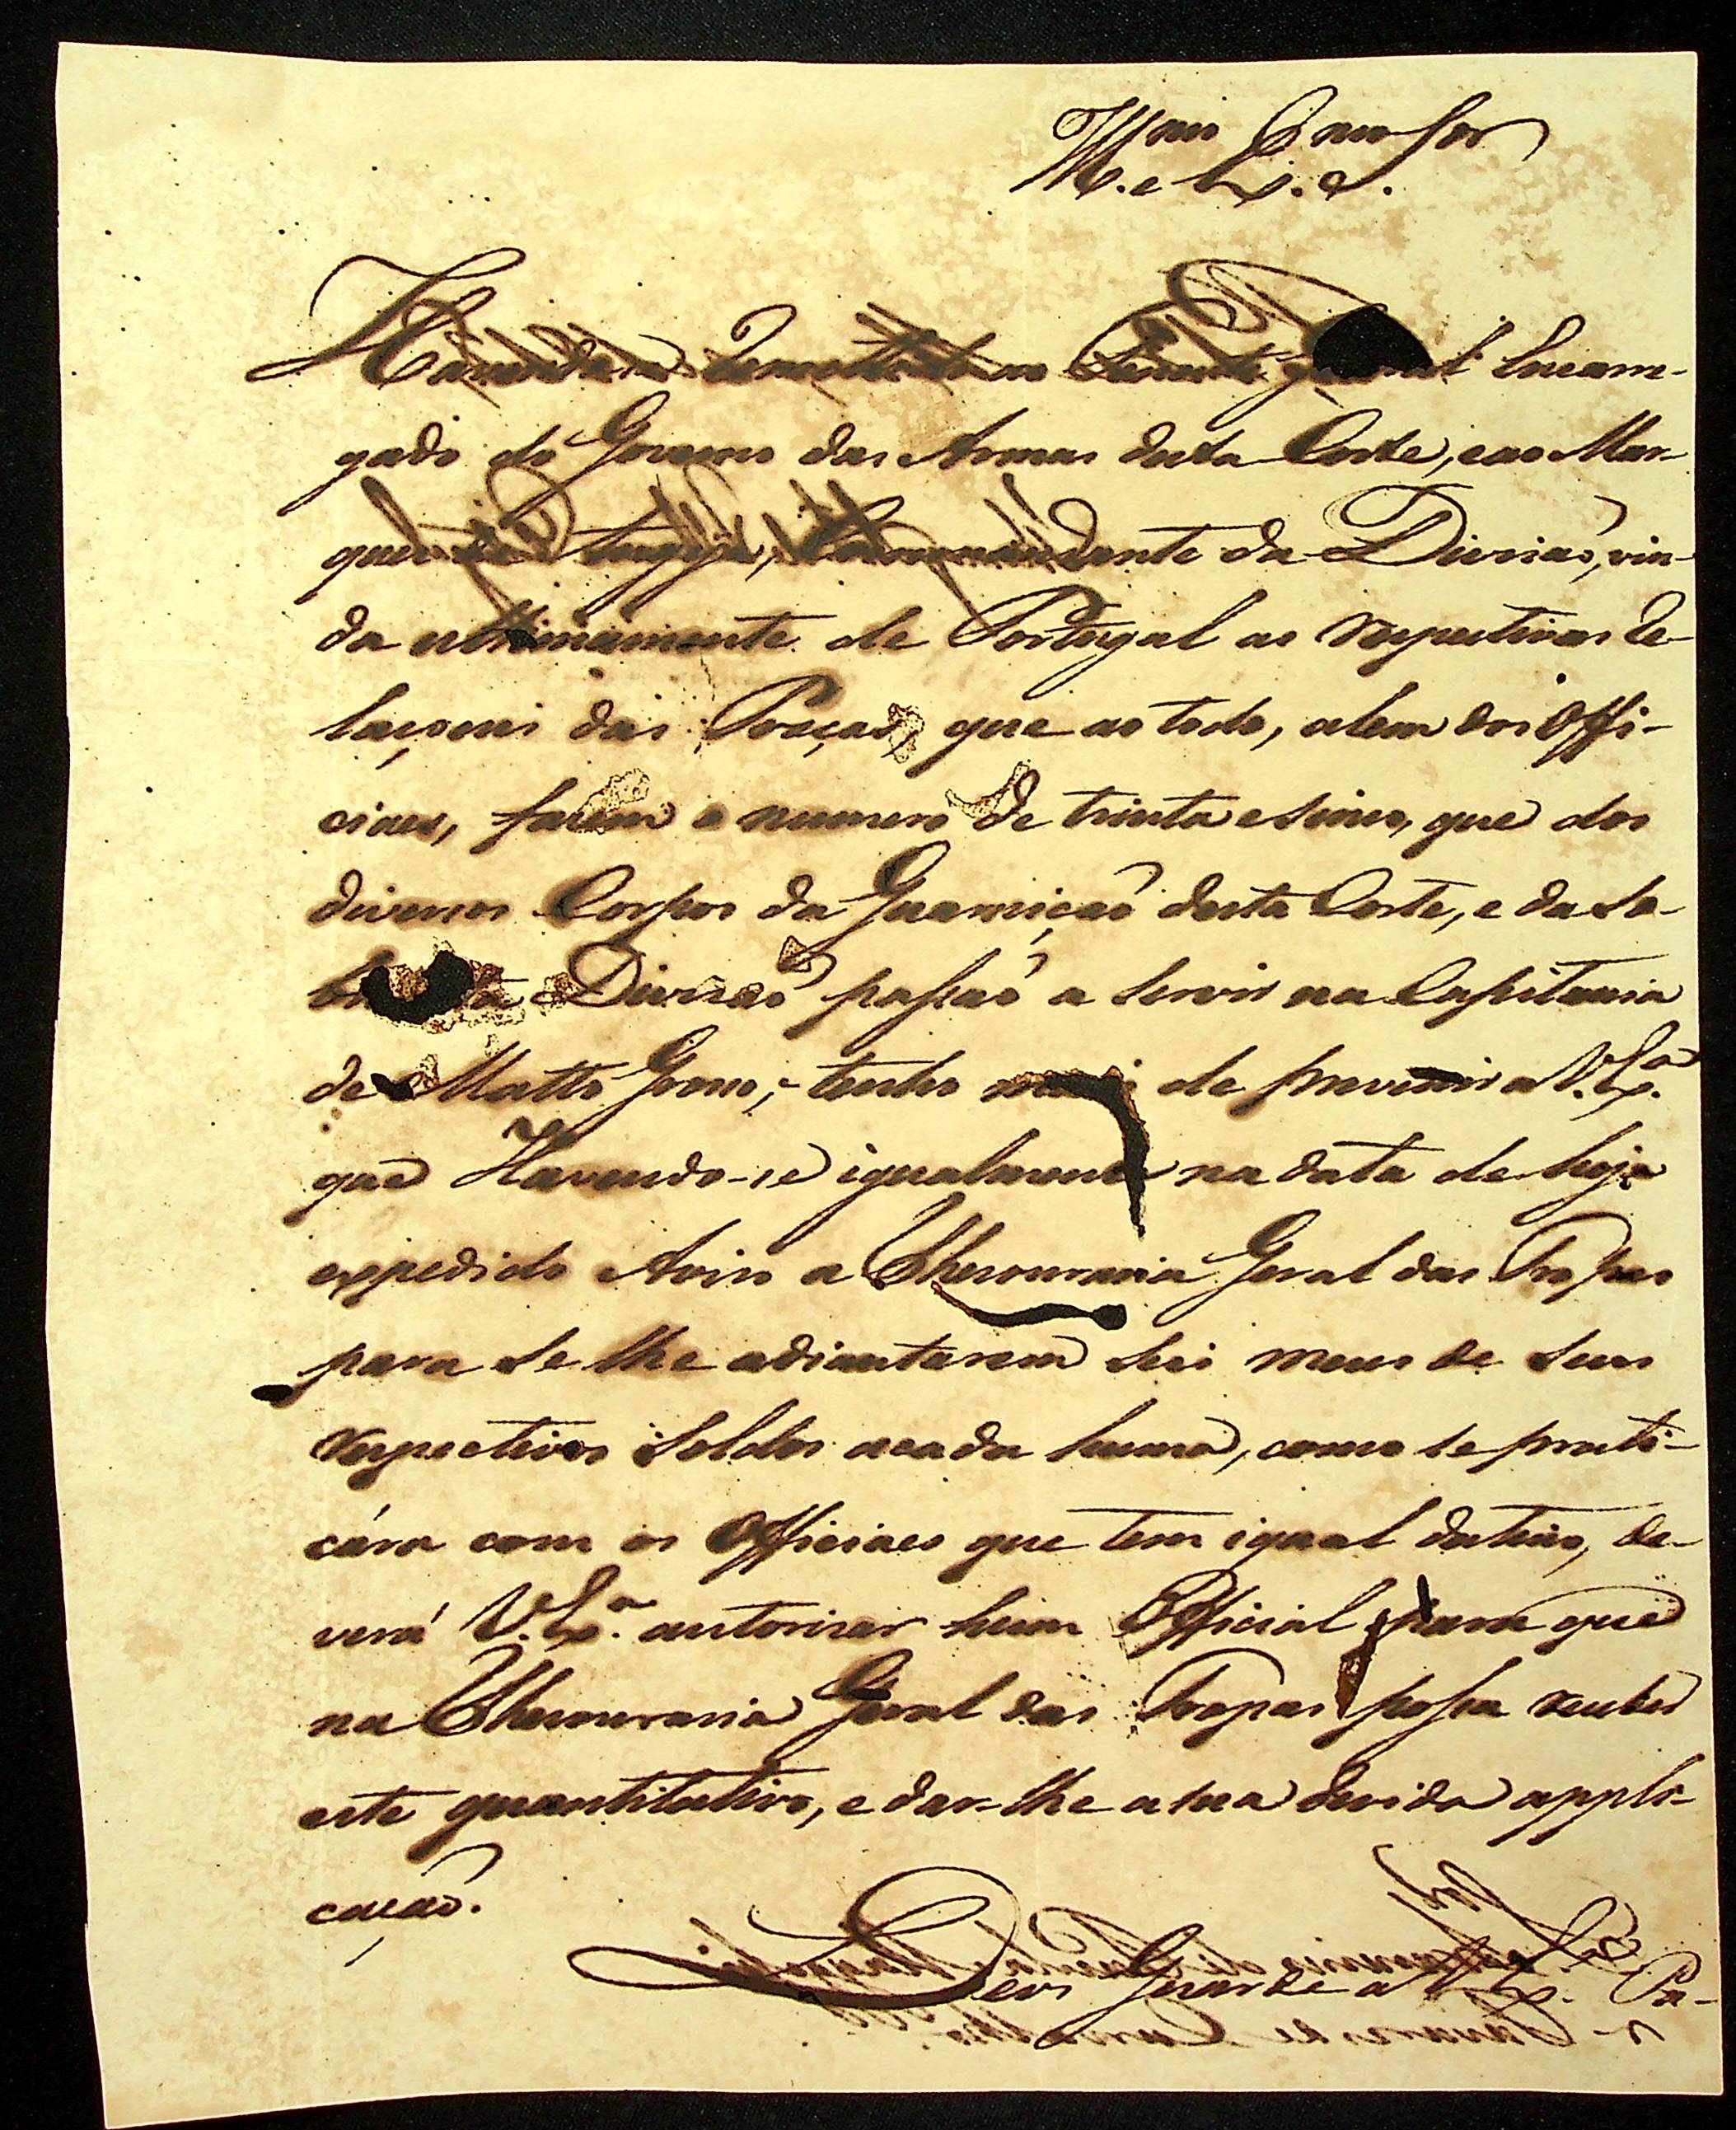 Havendo-se remettido ao Tenente General Encarre-
gado do Governo das Armas desta Corte, e ao Mar-
quez de Angeja, Commandante da Divisaõ, vin-
da ultimamente de Portugal as respectivas Re-
laçoens das Praças, que ao todo, alem dos Offi-
ciaes, fazem o numero de trinta e sinco, que dos
diversos Corpos da Guarniçaõ desta Corte, e da so-
bredita Divisaõ passaõ a servir na Capitania
de Matto Grosso; tenho mais de prevenir a V. Ex.ª
que Havendo-se igualmente na data de hoje
expedido Aviso a Thesouraria Geral das Tropas
para se lhe adiantarem seis mezes de seus
respectivos Soldos a cada huma, como se prati-
cára com os Officiaes que tem igual destino, de-
verá V. Ex.ª autorisar hum Official para que
na Thesouraria Geral das Tropas possa receber
este quantitativo, e dar-lhe a sua devida appli-
caçaõ.
Deos Guarde a V. Ex.ª Pa-